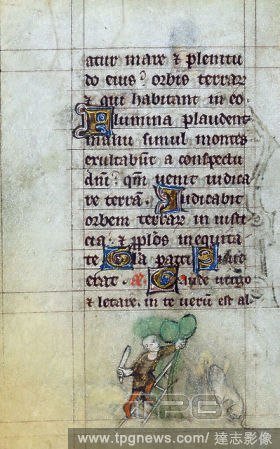 atur mare ⁊ plenitu
do eius ? orbis terrar
⁊ qui habitant in eo.
Flumina plaudent
manu simul montes
exultabūt a conspectu
dn̄i : qm̄ uenit iudica
re terrā. Iudicabit
orbem terrar in iusti
cia : ⁊ pp̄los in equita
te Gl̄a patri Sicut
erat. Gaude uirgo
⁊ letare. in te uerū est al
TPG
www.tpgnews.com/ 達志影像